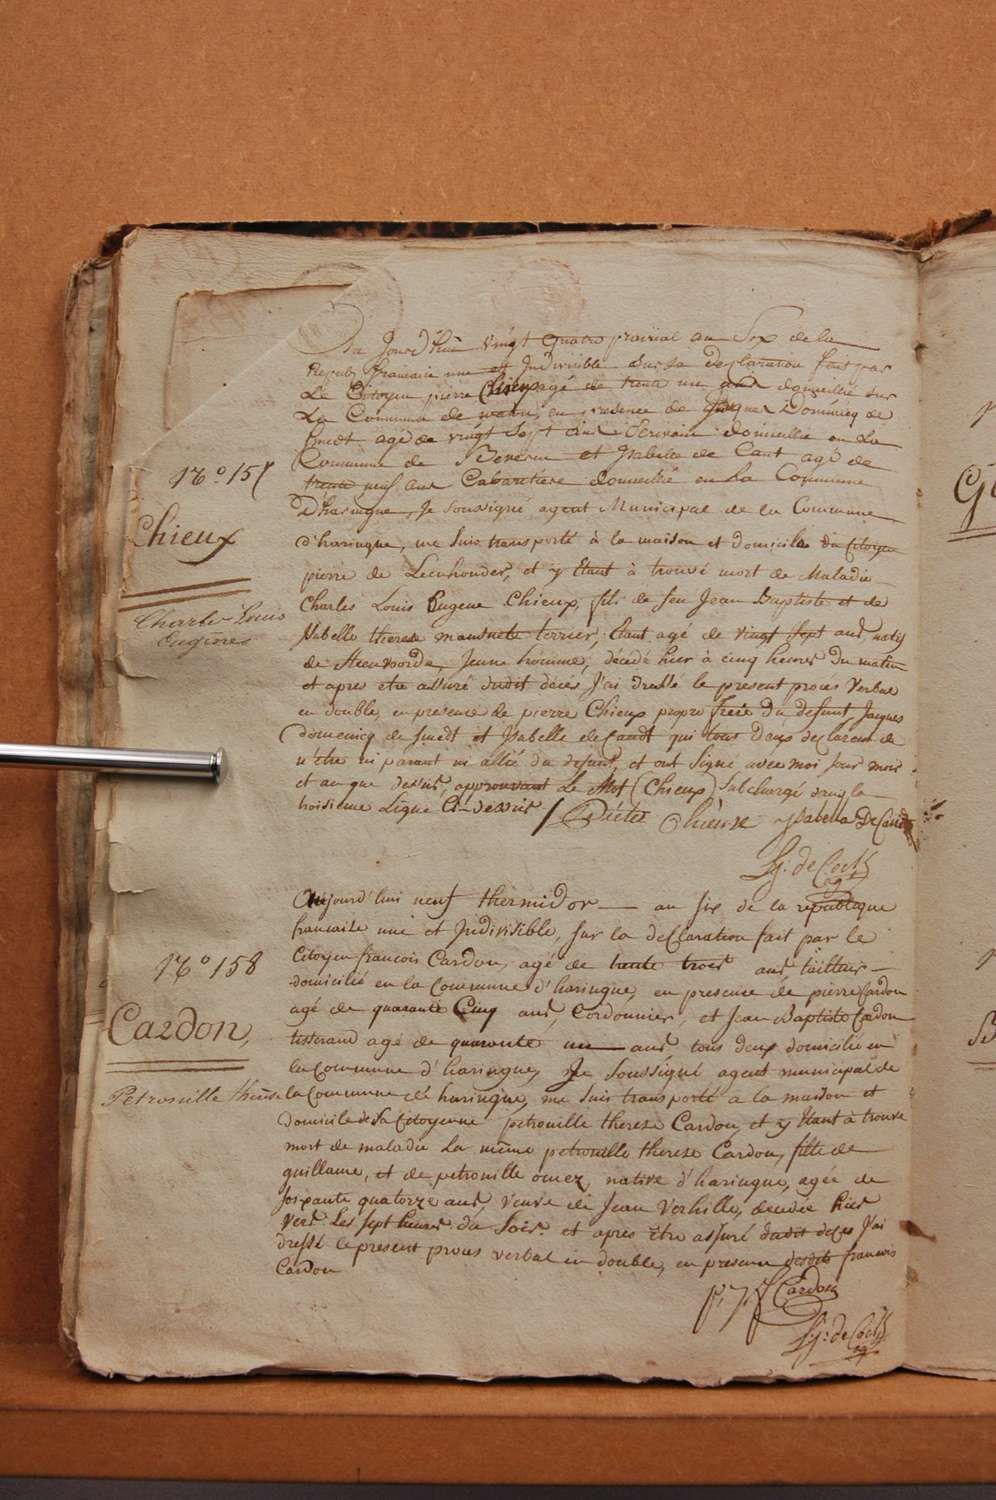 Du Jourd'huÿ vingt quatre prairial an Six de la
Repub. francaise une et Indivisible sur la declaration fait par
Le Citoyen pierre Chieux agé de trente une ans domicilié sur
La Commune de en presence de Jacques Dominicq de
Smedt agé de vingt Sept ans Ecrivain domicilié en La
Commune de Beveren et Isabelle de Cant agé de
trente neuf ans Cabaretiere domicilié en La Commune
D'haringue, Je Soussigné agent Municipal de la Commune
d'haringue, me suis transporté à la maison et domicile du Citoyen
pierre de Leenhouder, et y Etant à trouvé mort de Maladie
Charles Louis Eugene Chieux, fils de feu Jean Baptiste et de
Isabelle therese mansuete terrier, Etant agé de vingt Sept ans, natif
de Steenvorde, Jeune homme, décédé hier à cinq heures Du matin
et apres etre assuré dudit décès J'ai dressé le present proces verbal
en double, en presence de pierre Chieux propre frere du defunt Jacques
domenicq de Smedt et Ysabelle de Candt qui tous Deux declarent de
n'être ni parant ni allié du defunt, et ont Signé avec moi Jour mois
et an que dessus, approuvant Le Mot (Chieux) Subchargé dans la
troisieme Ligne Ci-dessus / Pieter Chieux Ysabella De Candt
Sj. de Cock
agt
N.o 157
Chieux
Charles Louis
Eugenes
Aujourd'hui neuf thermidor — an Six de la republique
francaise une et Indivisible, Sur la declaration fait par le
Citoyen francois Cardon, agé de trente trois ans tailleur —
domicilié en la Commune d'haringue, en presence de pierre Cardon
agé de quarante Cinq ans, Cordonnier, et Jean Baptiste Cardon
tisserand agé de quarante un ans tous deux domicilié en
la Commune d'haringue, Je Soussigné agent municipal de
la Commune d'haringue, me suis transporté a la maison et
domicile de la Citoyenne petronille therese Cardon, et y Etant à trouvé
mort de maladie La même petronille therese Cardon, fille de
guillaume, et de petronille omez, native d'haringue, agée de
Soixante quatorze ans, veuve de Jean Verhille, decedée hier
vers Les Sept heures du Soir et apres être assuré dudit deces J'ai
dressé le present proces verbal en double, en presence desdits francois
Cardon
N.o 158
Cardon,
Petronille therese
Cardon
Sj. de Cock
agt